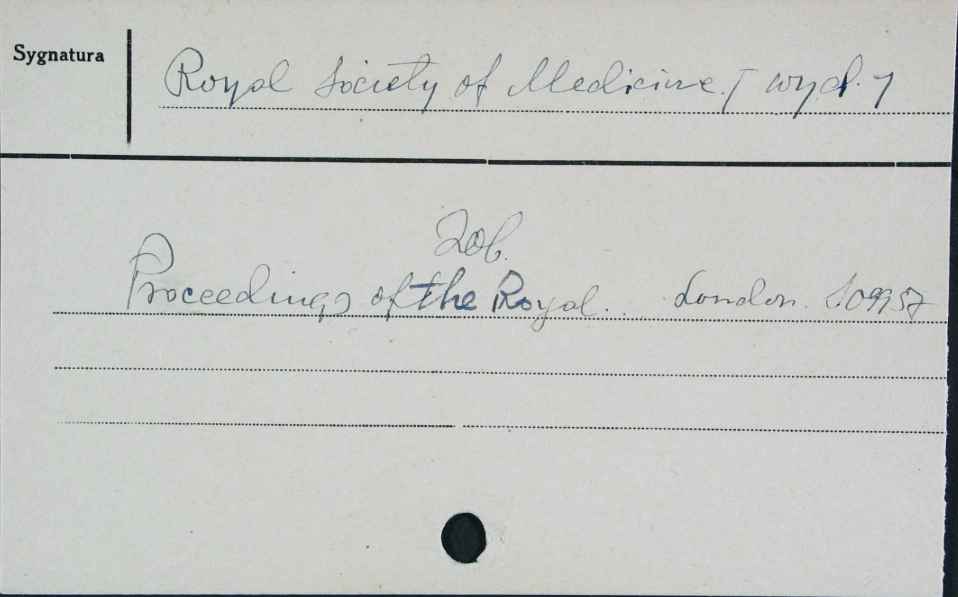 Sygnatura
Royal Society of Medicine. [wyd.]
Zob.
Proceedings of the Royal... London. S09957